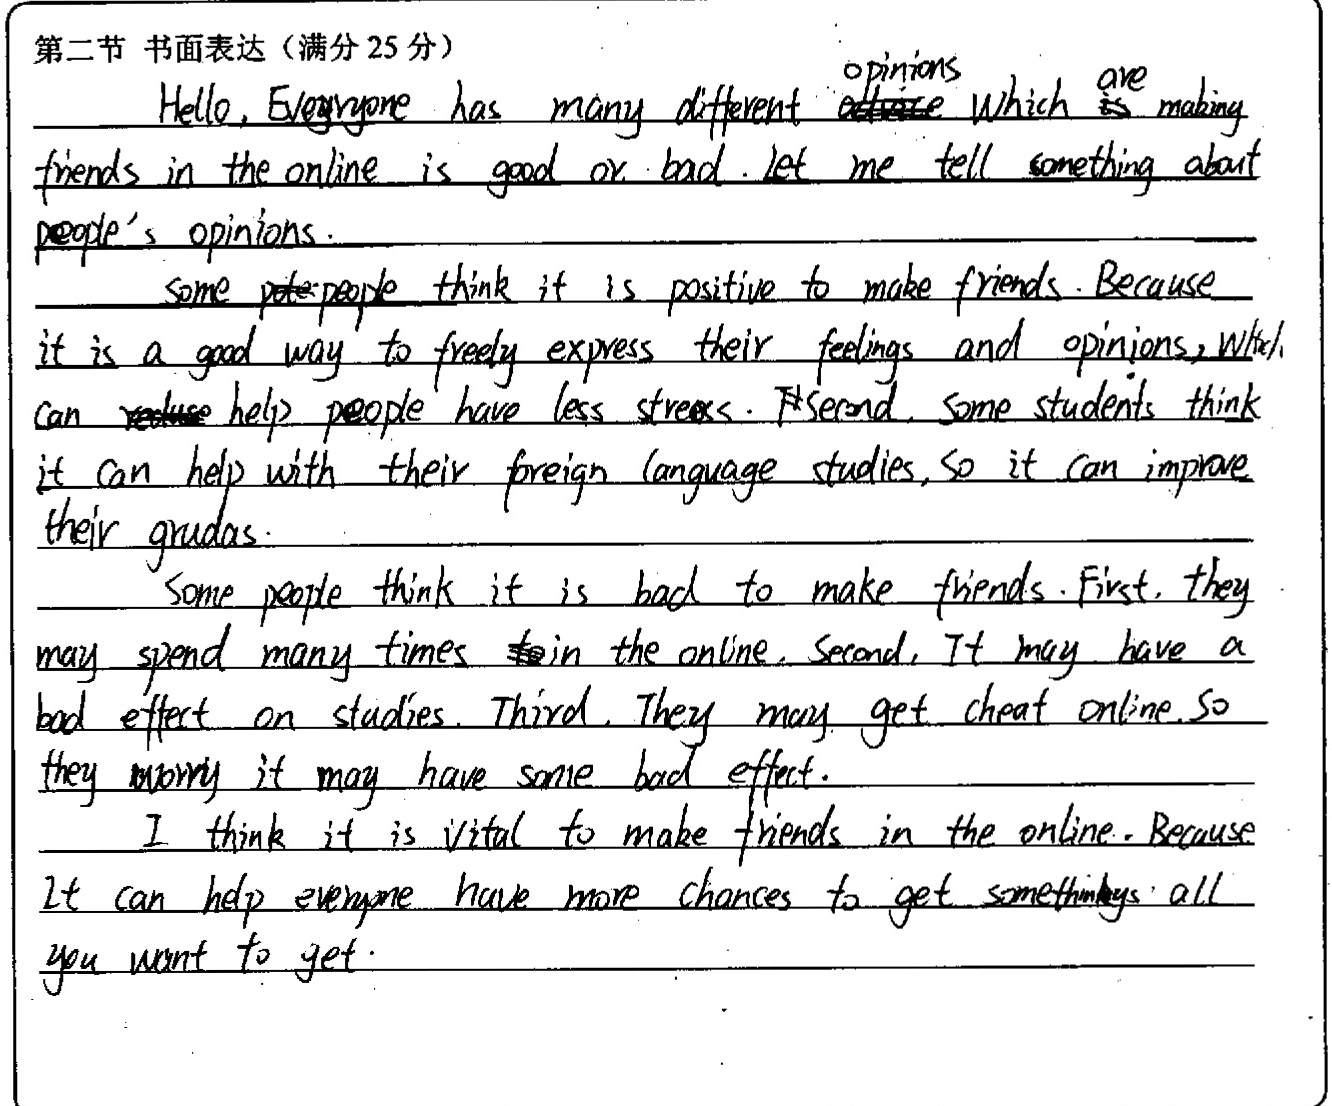 第二节 书面表达（满分 25 分）
Hello, Everyone has many different opinions which are making
friends in the online is good or bad. Let me tell something about
people's opinions.
Some people think it is positive to make friends. Because
it is a good way to freely express their feelings and opinions, which
can help people have less stress. Second. Some students think
it can help with their foreign language studies, So it can improve
their grudas.
Some people think it is bad to make friends. First. they
may spend many times in the online. Second, It may have a
bad effect on studies. Third. They may get cheat online. So
they worry it may have some bad effect.
I think it is vital to make friends in the online. Because
It can help everyone have more chances to get somethings all
you want to get.